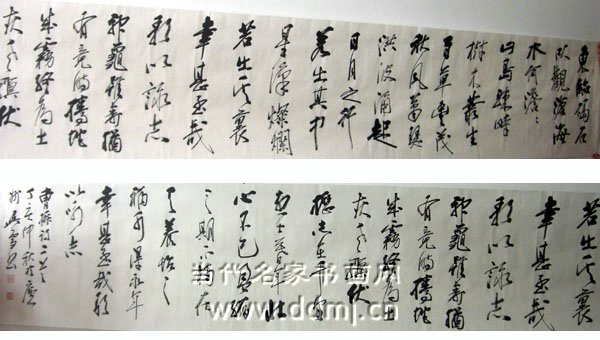 東臨碣石
以觀滄海
水何澹〻
山島竦峙
樹木叢生
百草豐茂
秋風蕭瑟
洪波涌起
日月之行
若出其中
星漢燦爛
若出其裏
幸甚至哉
歌以詠志
神龜雖壽猶
有竟時騰蛇
成霧終為土
灰老驥伏
若出其裏
幸甚至哉
歌以詠志
神龜雖壽猶
有竟時騰蛇
成霧終為土
灰老驥伏
櫪志在千里
烈士暮年壯
心不已盈縮
之期不獨在
天養怡之
福可得永年
幸甚至哉歌
以詠志
曹操詩二首
丁亥仲秋於
当代名家书画网
www.ddmj.cn